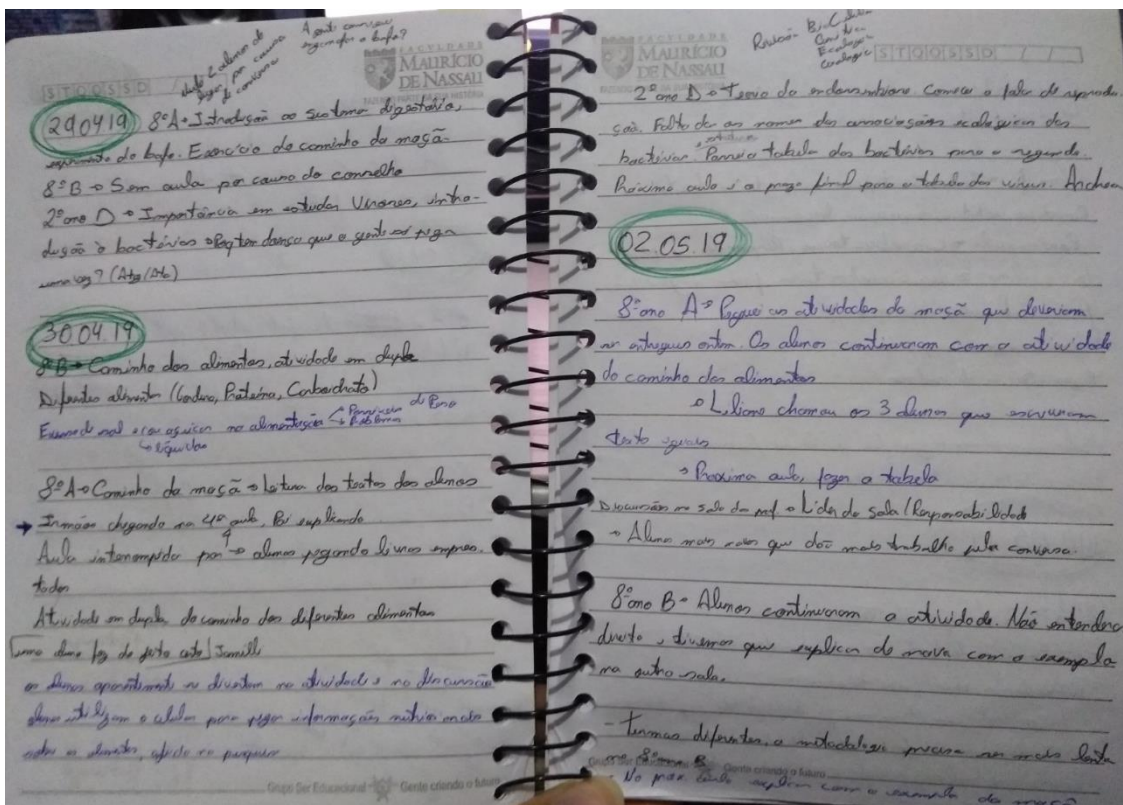 A gente consegue
segurar o bafo?
S T Q Q S S D / /
FACULDADE
MAURÍCIO
DE NASSAU
29.04.19 8ºA → Introdução ao sistema digestório,
experimento do bafo. Exercício do caminho da maçã
8º B → Sem aula por causa do conselho
2º ano D → Importância em estudar Viroses, intro-
dução à bactérias → tem doença que a gente só pega
uma vez?
30.04.19
8º B → Caminho dos alimentos, atividade em dupla
Diferentes alimentos (Gordura, Proteína, Carboidrato)
na alimentação
líquidos
8º A → Caminho da maçã → Leitura dos textos dos alunos
→ Irmãos chegando na 4ª aula, foi explicado
Aula interrompida por → alunos pegando livros empres-
tados
Atividade em dupla, do caminho dos diferentes alimentos
uma aluna fez do jeito certo Jamilli
os alunos aparentemente se divertem na atividade e na discussão
alunos utilizam o celular para pegar informações nutricionais
sobre os alimentos
Grupo Ser Educacional Gente criando o futuro
FACULDADE
MAURÍCIO
DE NASSAU
Revisão
Genética
Ecologia
S T Q Q S S D / /
2º ano D → Teoria da endossimbiose. Comecei a falar de reprodu-
ção. Falta dar os nomes das associações ecológicas das
bactérias. Passei a tabela das bactérias para a segunda.
Próxima aula é o prazo final para a tabela dos vírus. Andrea
02.05.19
8º ano A → Peguei as atividades da maçã que deveriam
ser entregues ontem. Os alunos continuaram com a atividade
do caminho dos alimentos
→ Liliane chamou os 3 alunos que escreveram
texto iguais
→ Próxima aula, fazer a tabela
Discussão na sala do prof → Líder de sala / Responsabilidade
→ Alunos mais que dão mais trabalho pela conversa.
8º ano B → Alunos continuaram a atividade. Não entenderam
direito, tivemos que explicar de novo com o exemplo
na outra sala.
- Turmas diferentes, a metodologia precisa ser mais lenta
no 8º ano B
Grupo Ser Educacional Gente criando o futuro
- Na próx aula explicar com o exemplo da maçã